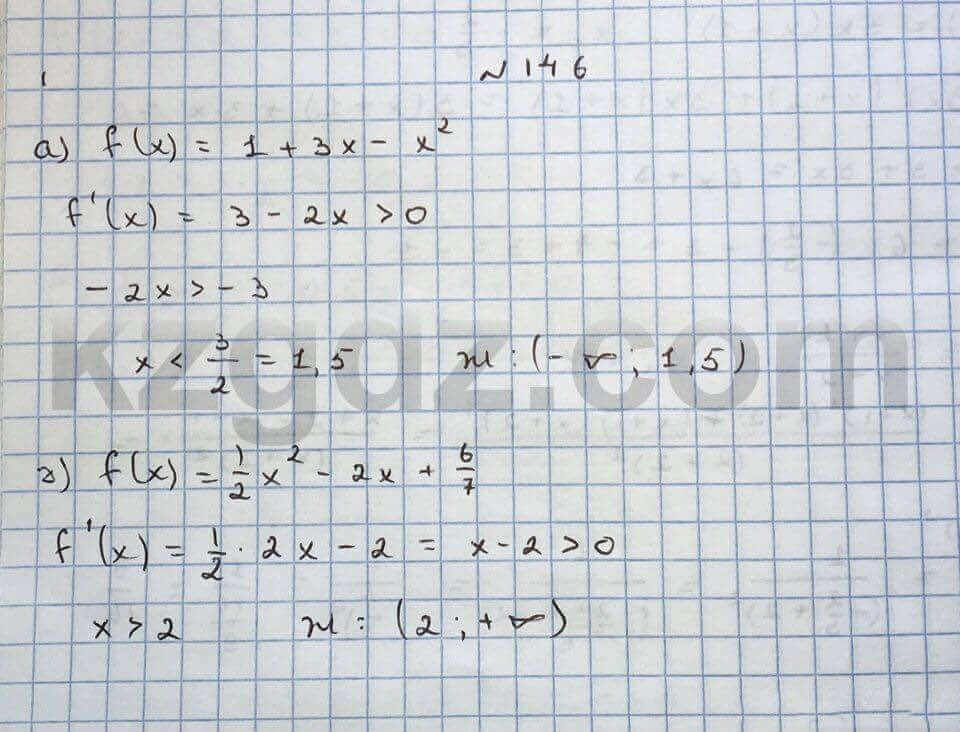 № 146
а) f(x) = 1 + 3x - x²
f'(x) = 3 - 2x > 0
- 2x > - 3
x < 3/2 = 1,5 ж: (- ∞; 1,5)
kzgdz.com
г) f(x) = 1/2 x² - 2x + 6/7
f'(x) = 1/2 · 2x - 2 = x - 2 > 0
x > 2 ж: (2; + ∞)